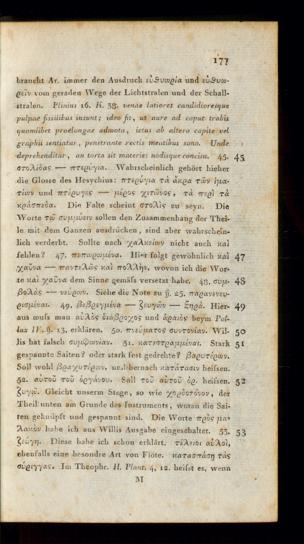 177
braucht Ar. immer den Ausdruck εὐθυωρία und εὐθυω-
ρεῖν vom geraden Wege der Lichtstralen und der Schall-
stralen. Plinius 16. K. 38. venae latiores candidioresque
pulpae fissilibus insunt; ideo fit, ut aure ad caput trabis
quamlibet praelongae admota, ictus ab altero capite vel
graphii sentiatur, penetrante rectis meatibus sono. Unde
deprehenditur, an torta sit materies nodisque concisa. 45. 45
στολίδας — πτερύγια. Wahrscheinlich gehört hieher
die Glosse des Hesychius: πτερύγια τὰ ἄκρα τῶν ἱμα-
τίων und πτέρυγος — μέρος χιτῶνος, τὰ περὶ τὰ
κράσπεδα. Die Falte scheint στολὶς zu seyn. Die
Worte τῷ συμμύειν sollen den Zusammenhang der Thei-
le mit dem Ganzen ausdrücken, sind aber wahrschein-
lich verderbt. Sollte nach χαλκείων nicht auch καὶ
fehlen? 47. πεπυρωμένα. Hier folgt gewöhnlich καὶ 47
χαῦνα — παντελῶς καὶ πολλήν, wovon ich die Wor-
te καὶ χαῦνα dem Sinne gemäſs versetzt habe. 48. συμ- 48
βολὰς — νεύρων. Siehe die Note zu §. 25.
rismέναι. 49. βεβρεγμένα — ζευγῶν — ξηρά. Hier- 49
aus wuſs man αὐλὸς διάβροχος und ἀραιὸς beym Pol-
lux IV. §. 13. erklären. 50. πνεύματος συντονίαν. Wil- 50
lis hat falsch συμφωνίαν. 51. κατεστραμμέναι. Stark 51
gespannte Saiten? oder stark fest gedrehte? βαρυτέρων.
Soll wohl βραχυτέρων, uebernach κατάτασιν heiſsen.
52. αὐτοῦ τοῦ ὀργάνου. Soll τοῦ αὐτοῦ ὀρ. heiſsen. 52
ζυγῷ. Gleicht unserm Stege, so wie χορδοτόνον, der
Theil unten am Grunde des Instruments, woran die Sai-
ten geknüpft und gespannt sind. Die Worte πρὸς μα-
λακὸν habe ich aus Willis Ausgabe eingeschaltet. 53. 53
ζεύγη. Diese habe ich schon erklärt. τέλειοι αὐλοὶ,
ebenfalls eine besondre Art von Flöte. κατασπάσῃ τὰς
σύριγγας. Im Theophr. H. Plant. 4, 12. heiſst es, wenn
M